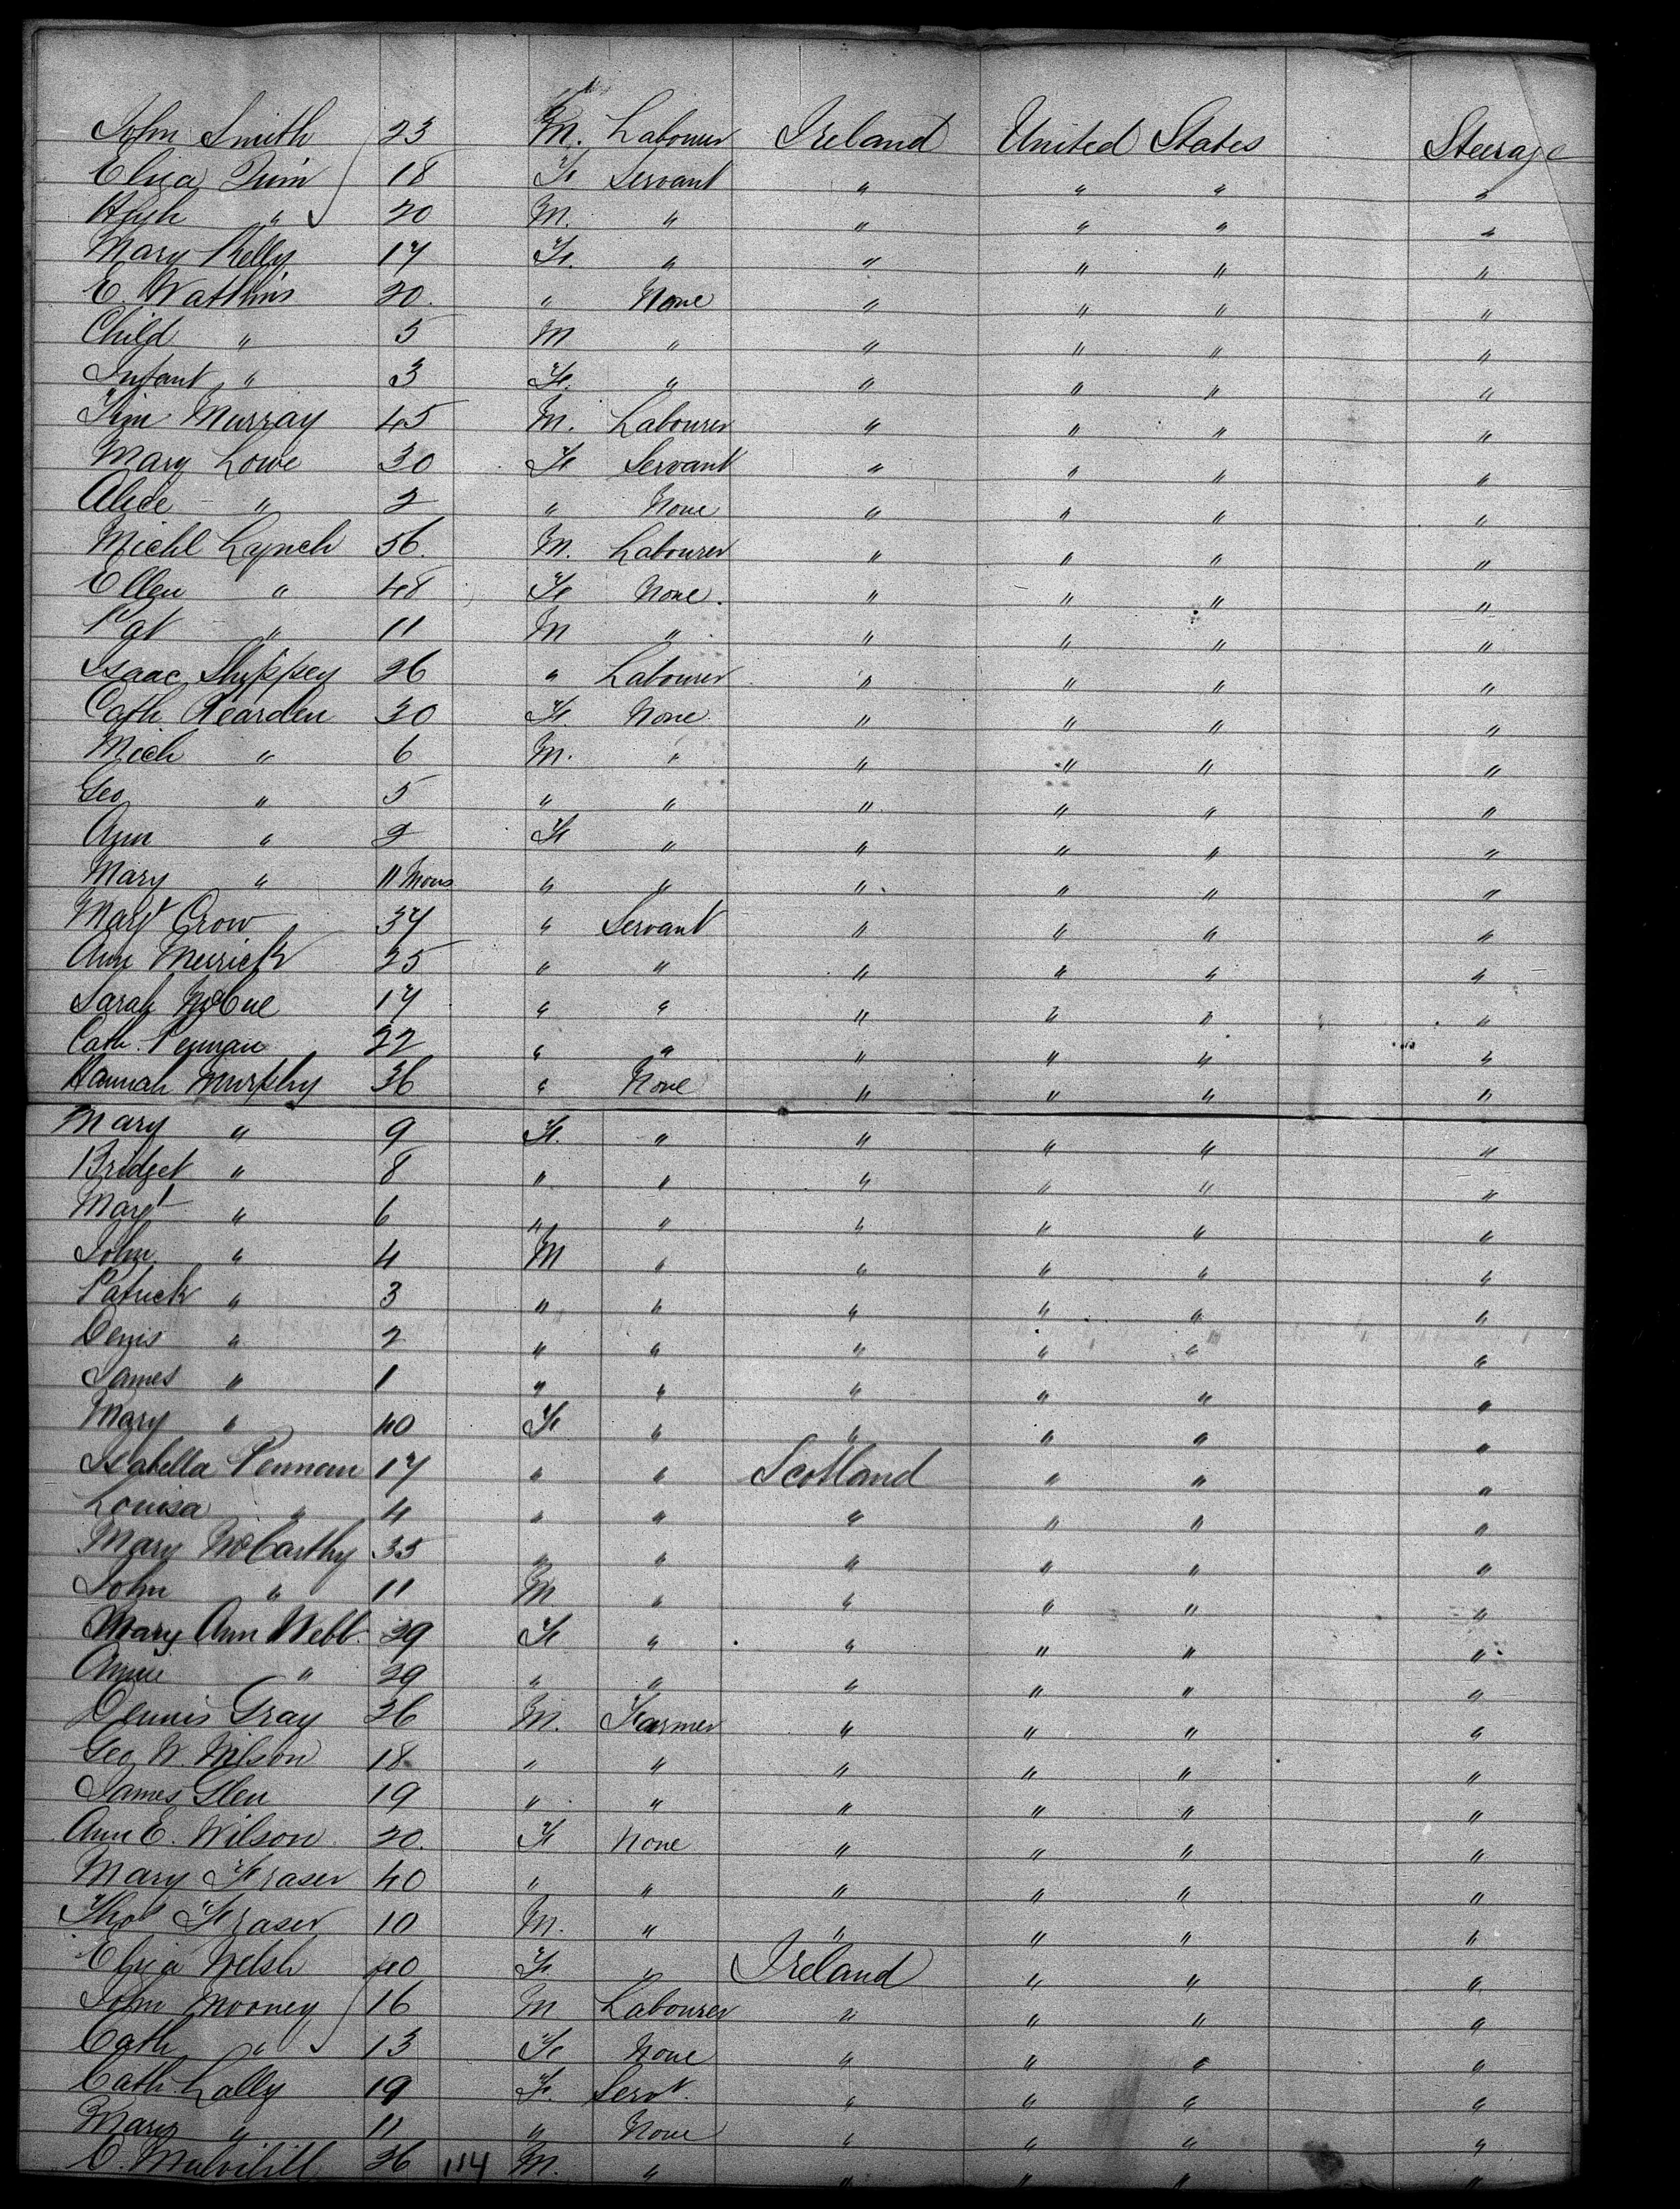 John Smith 23 M. Labourer Ireland United States Steerage
Eliza Quin 18 F Servant " " " "
Hugh " 20 M. " " " " "
Mary Kelly 17 F. " " " " "
E. Watkins 20. " None " " " "
Child " 5 M " " " " "
Infant " 3 F. " " " " "
Tim Murray 45 M. Labourer " " " "
Mary Lowe 30 F Servant " " " "
Alice " 2 " None " " " "
Michl Lynch 56. M. Labourer " " " "
Ellen " 48 F None. " " " "
Pat " 11 M " " " " "
Isaac Shippey 26 " Labourer " " " "
Cath Rearden 30 F. None " " " "
Mich " 6 M. " " " " "
Geo " 5 " " " " " "
Ann " 2 F " " " " "
Mary " 11 Mons " " " " " "
Margt Crow 37 " Servant " " " "
Ann Merrick 25 " " " " " "
Sarah McCue 17 " " " " " "
Cath. 22 " " " " " "
Hannah Murphy 36 " None " " " "
Mary " 9 F. " " " " "
Bridget " 8 " " " " " "
Margt " 6 " " " " " "
John " 4 M " " " " "
Patrick " 3 " " " " " "
Denis " 2 " " " " " "
James " 1 " " " " " "
Mary " 40 F " " " " "
Isabella Penman 17 " " Scotland " " "
Louisa " 4 " " " " " "
Mary McCarthy 35 " " " " " "
John " 11 M " " " " "
Mary Ann Webb. 39 F " " " " "
Annie " 29 " " " " " "
Dennis Gray 26 M. Farmer " " " "
Geo W. Wilson 18 " " " " " "
James Glen 19 " " " " " "
Ann E. Wilson 20. F None " " " "
Mary Fraser 40 " " " " " "
Thos Fraser 10 M. " " " " "
Eliza Welsh 40 F. " Ireland " " "
John Mooney 16 M Labourer " " " "
Cath " 13 F None " " " "
Cath. Lally 19 F. Servt. " " " "
Mary " 11 " None " " " "
C. Mulvihill 26 114 M. " " " " "